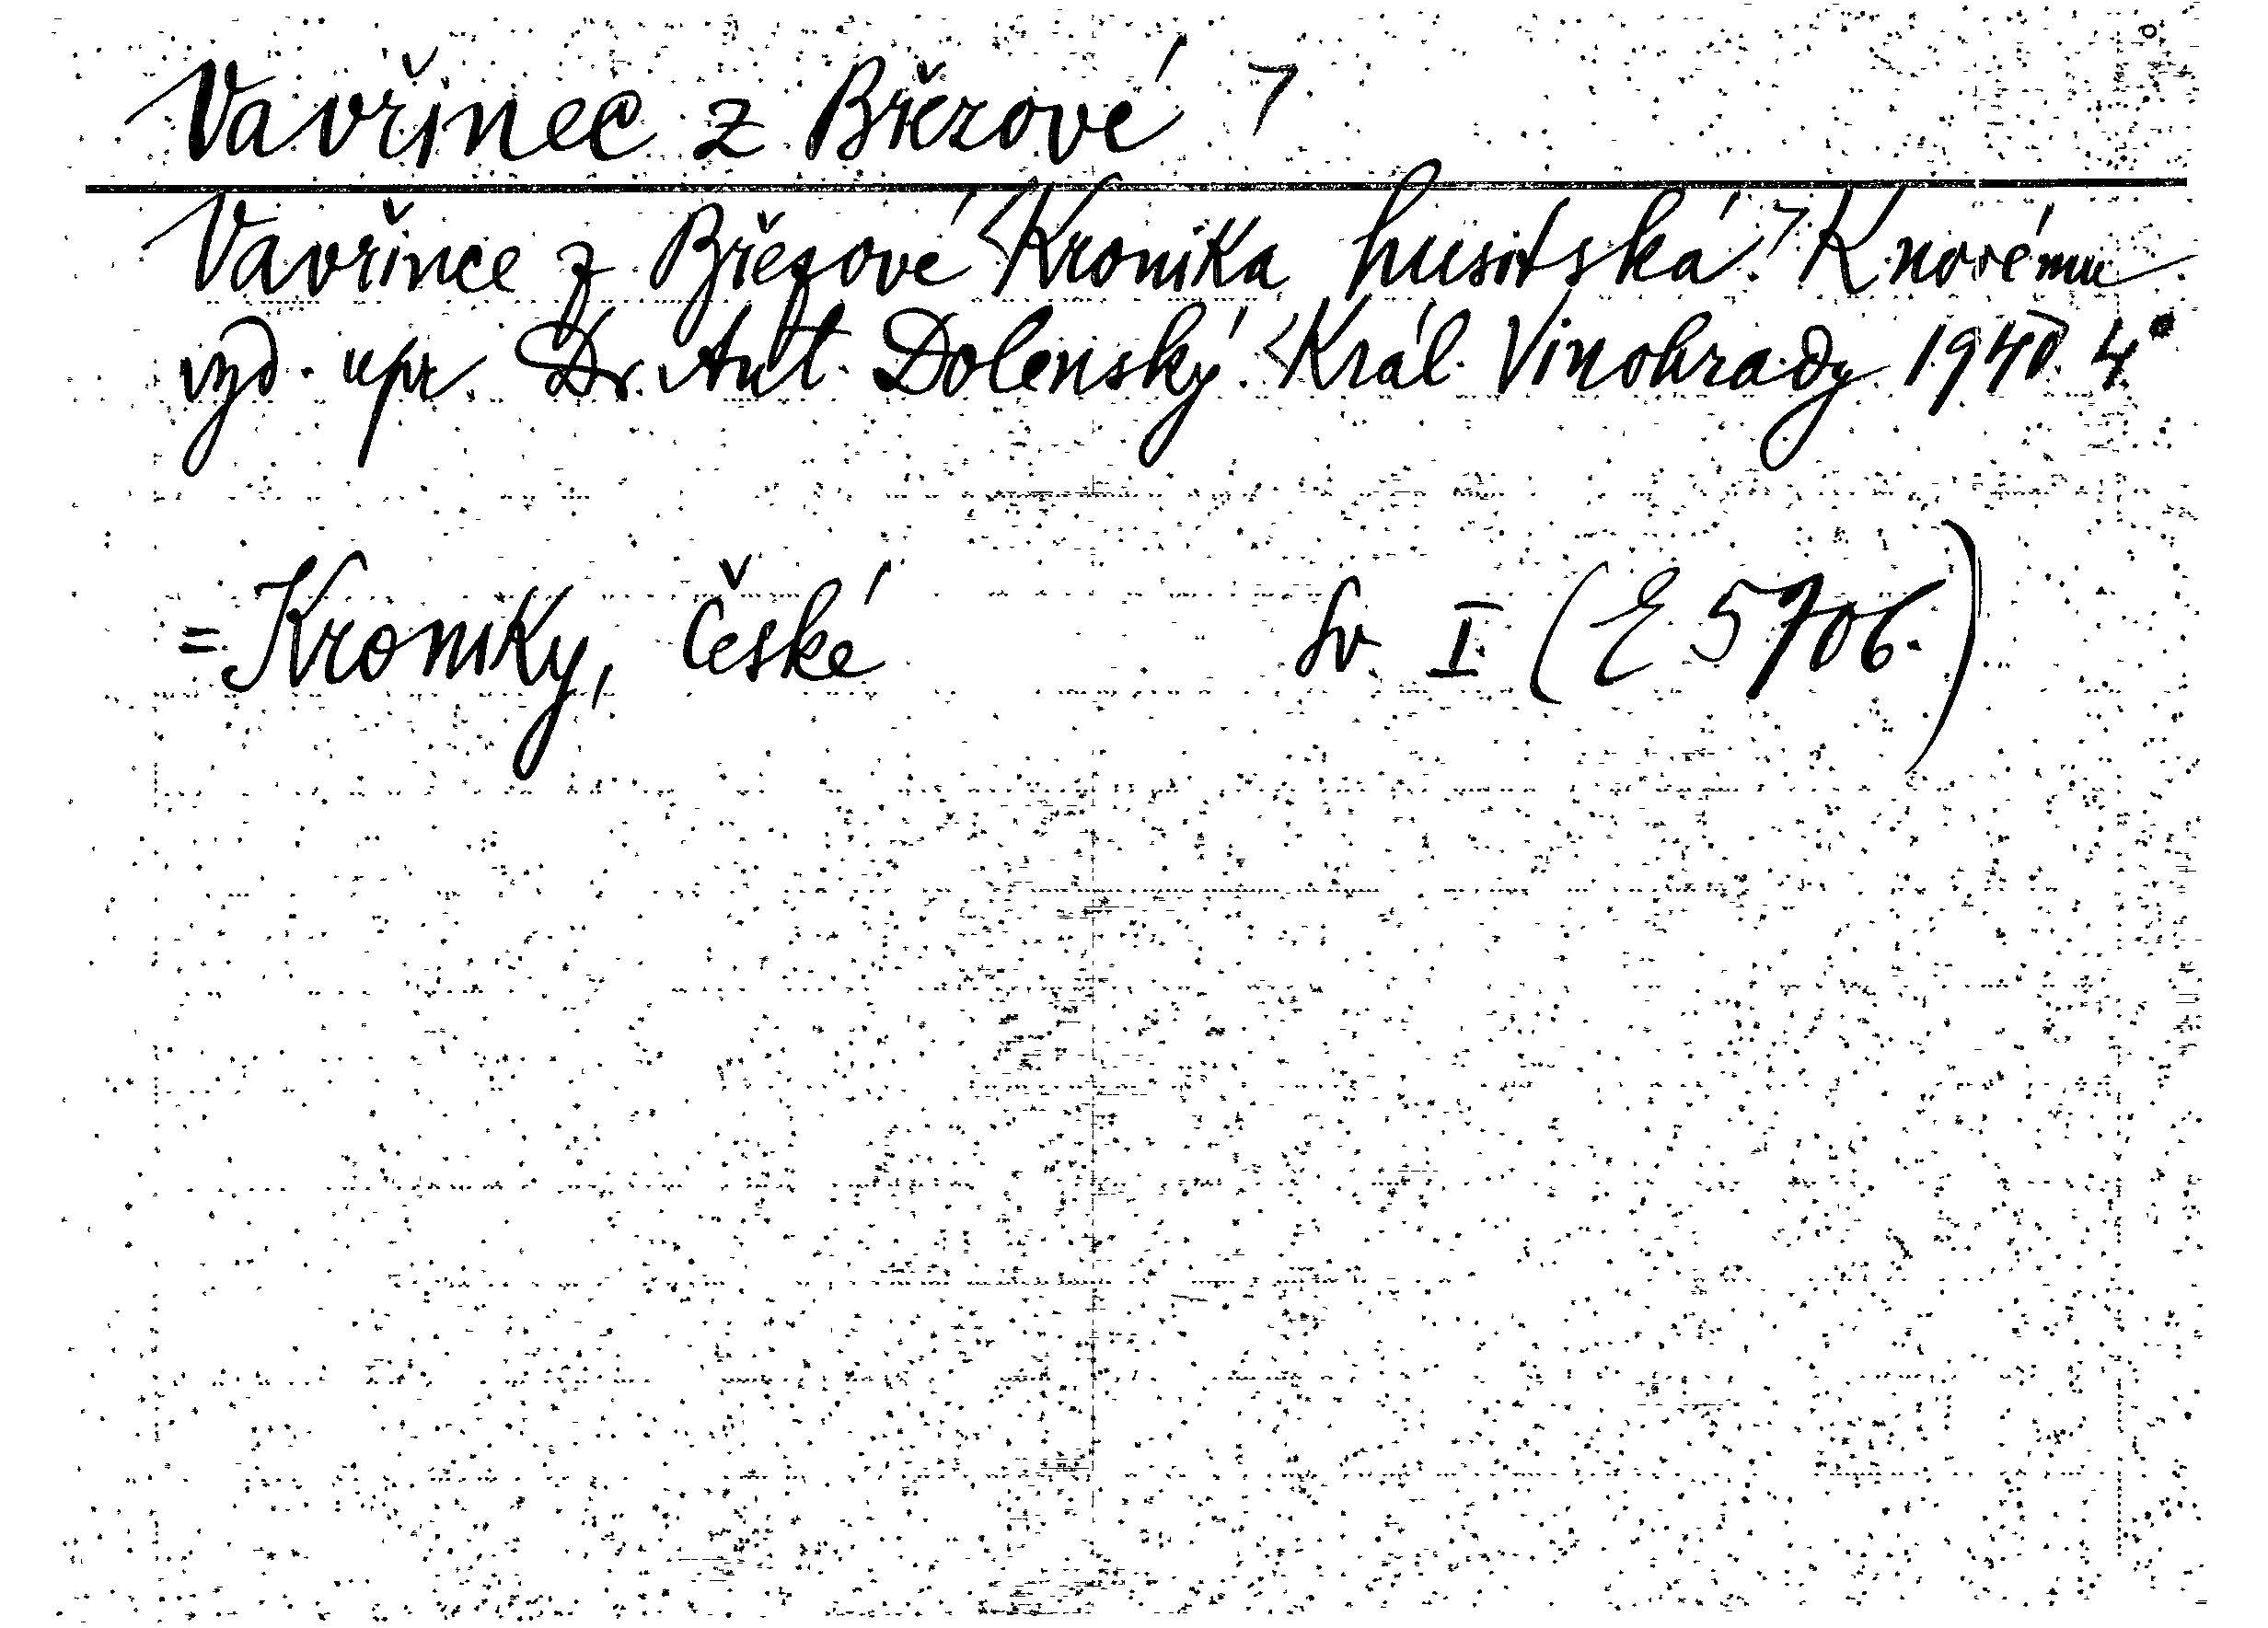 Vavřinec z Březové
Vavřince z Březové Kronika husitská. K novému
vyd. upr. Dr. Ant. Dolenský. Král. Vinohrady 1940. 4°
= Kroniky, České Sv. I (E 5706.)